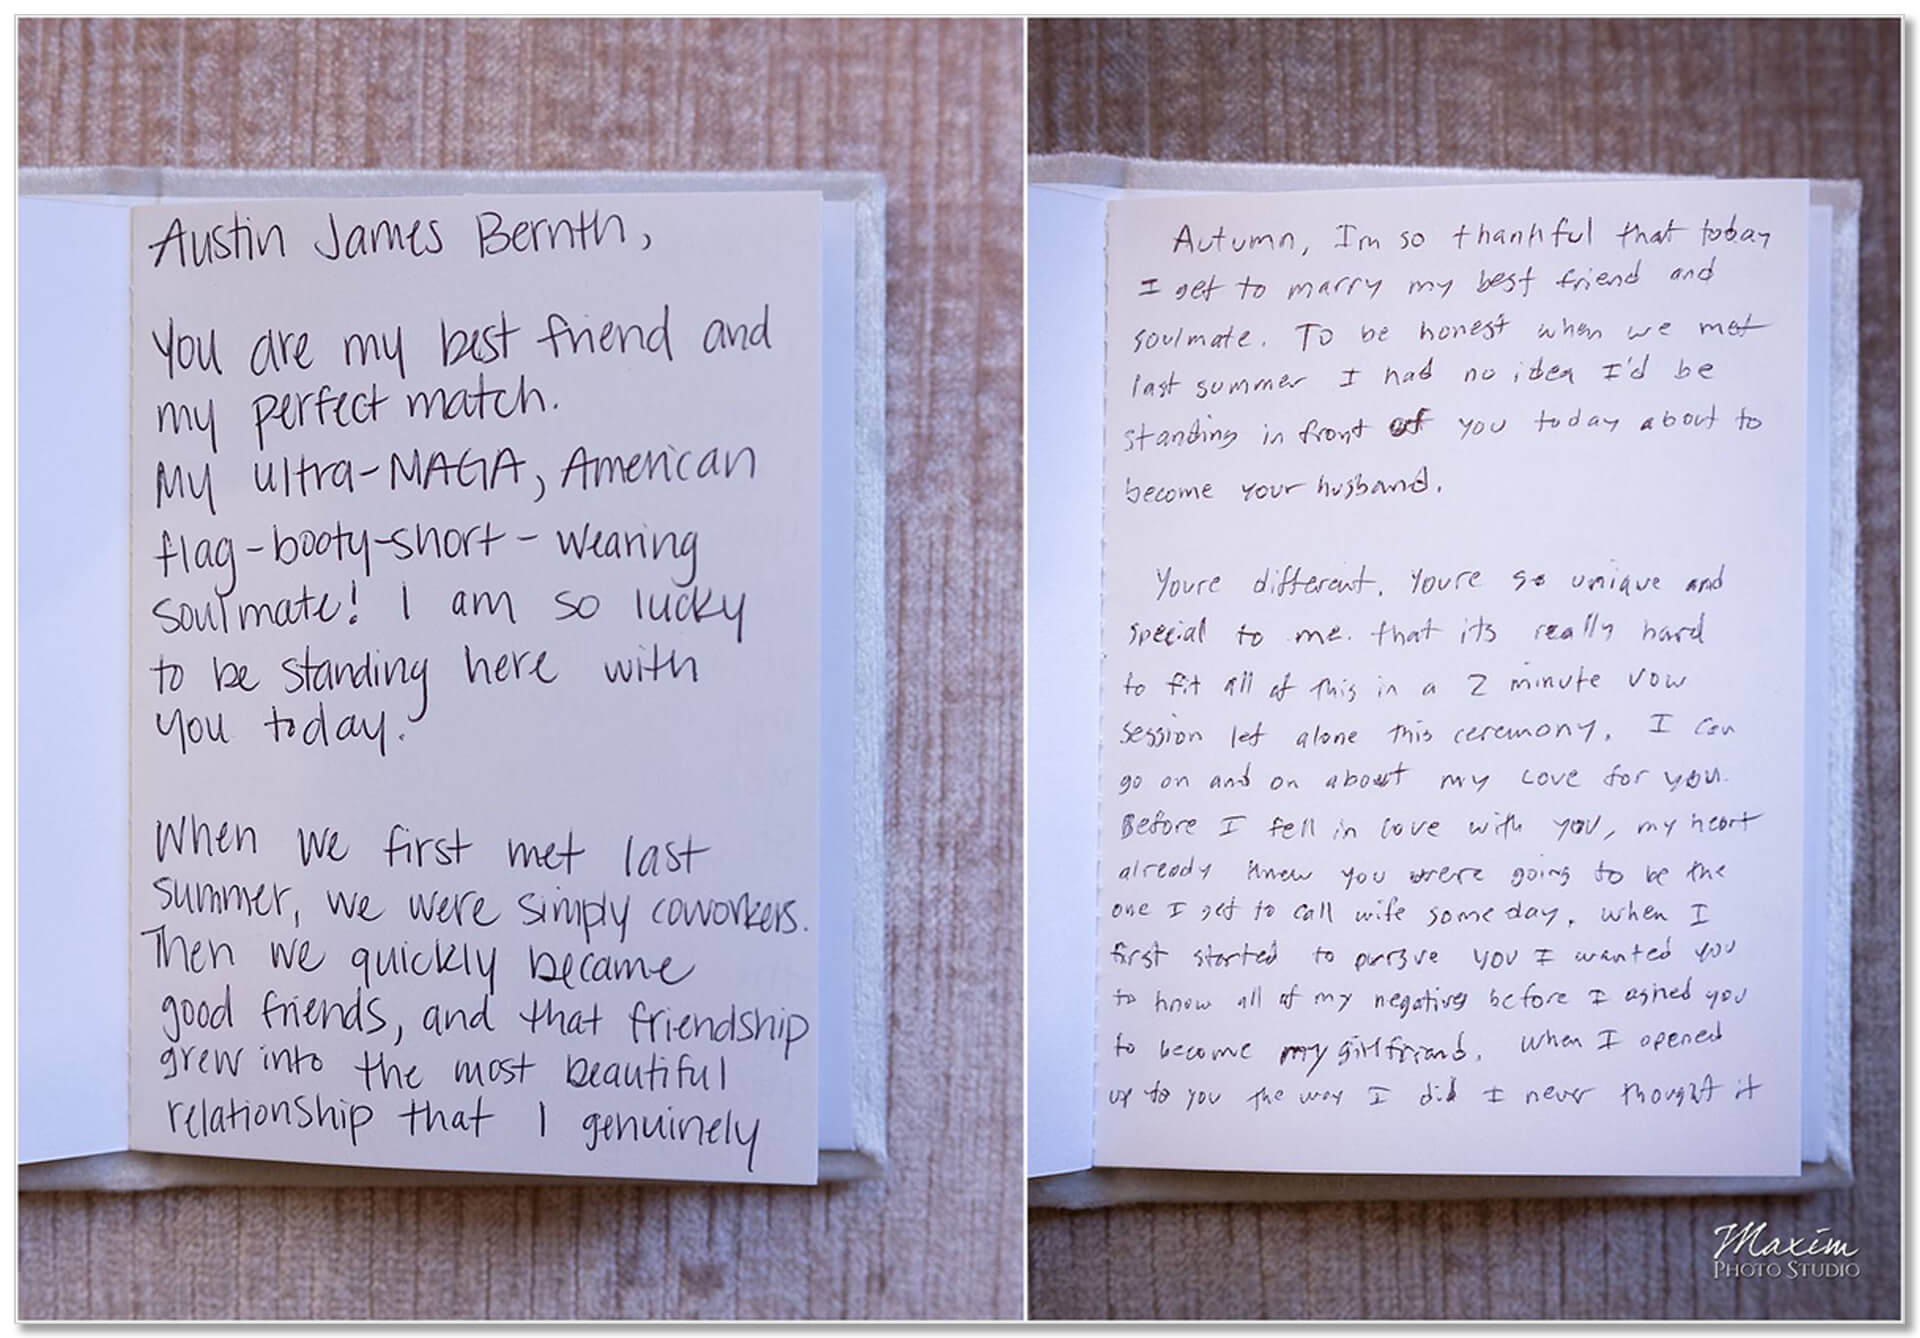 Austin James Bernth,
You are my best friend and
my perfect match.
My ultra-MAGA, American
flag-booty-short-wearing
soulmate! I am so lucky
to be standing here with
you today.
When we first met last
summer, we were simply coworkers.
Then we quickly became
good friends, and that friendship
grew into the most beautiful
relationship that I genuinely
Autumn, Im so thankful that today
I get to marry my best friend and
soulmate. To be honest when we met
last summer I had no idea I'd be
standing in front of you today about to
become your husband.
Youre different. Youre so unique and
special to me. that its really hard
to fit all of this in a 2 minute vow
session let alone this ceremony. I can
go on and on about my love for you.
Before I fell in love with you, my heart
already knew you were going to be the
one I get to call wife someday. When I
first started to pursue you I wanted you
to know all of my negatives before I asked you
to become my girlfriend. When I opened
up to you the way I did I never thought it
Maxim
PHOTO STUDIO